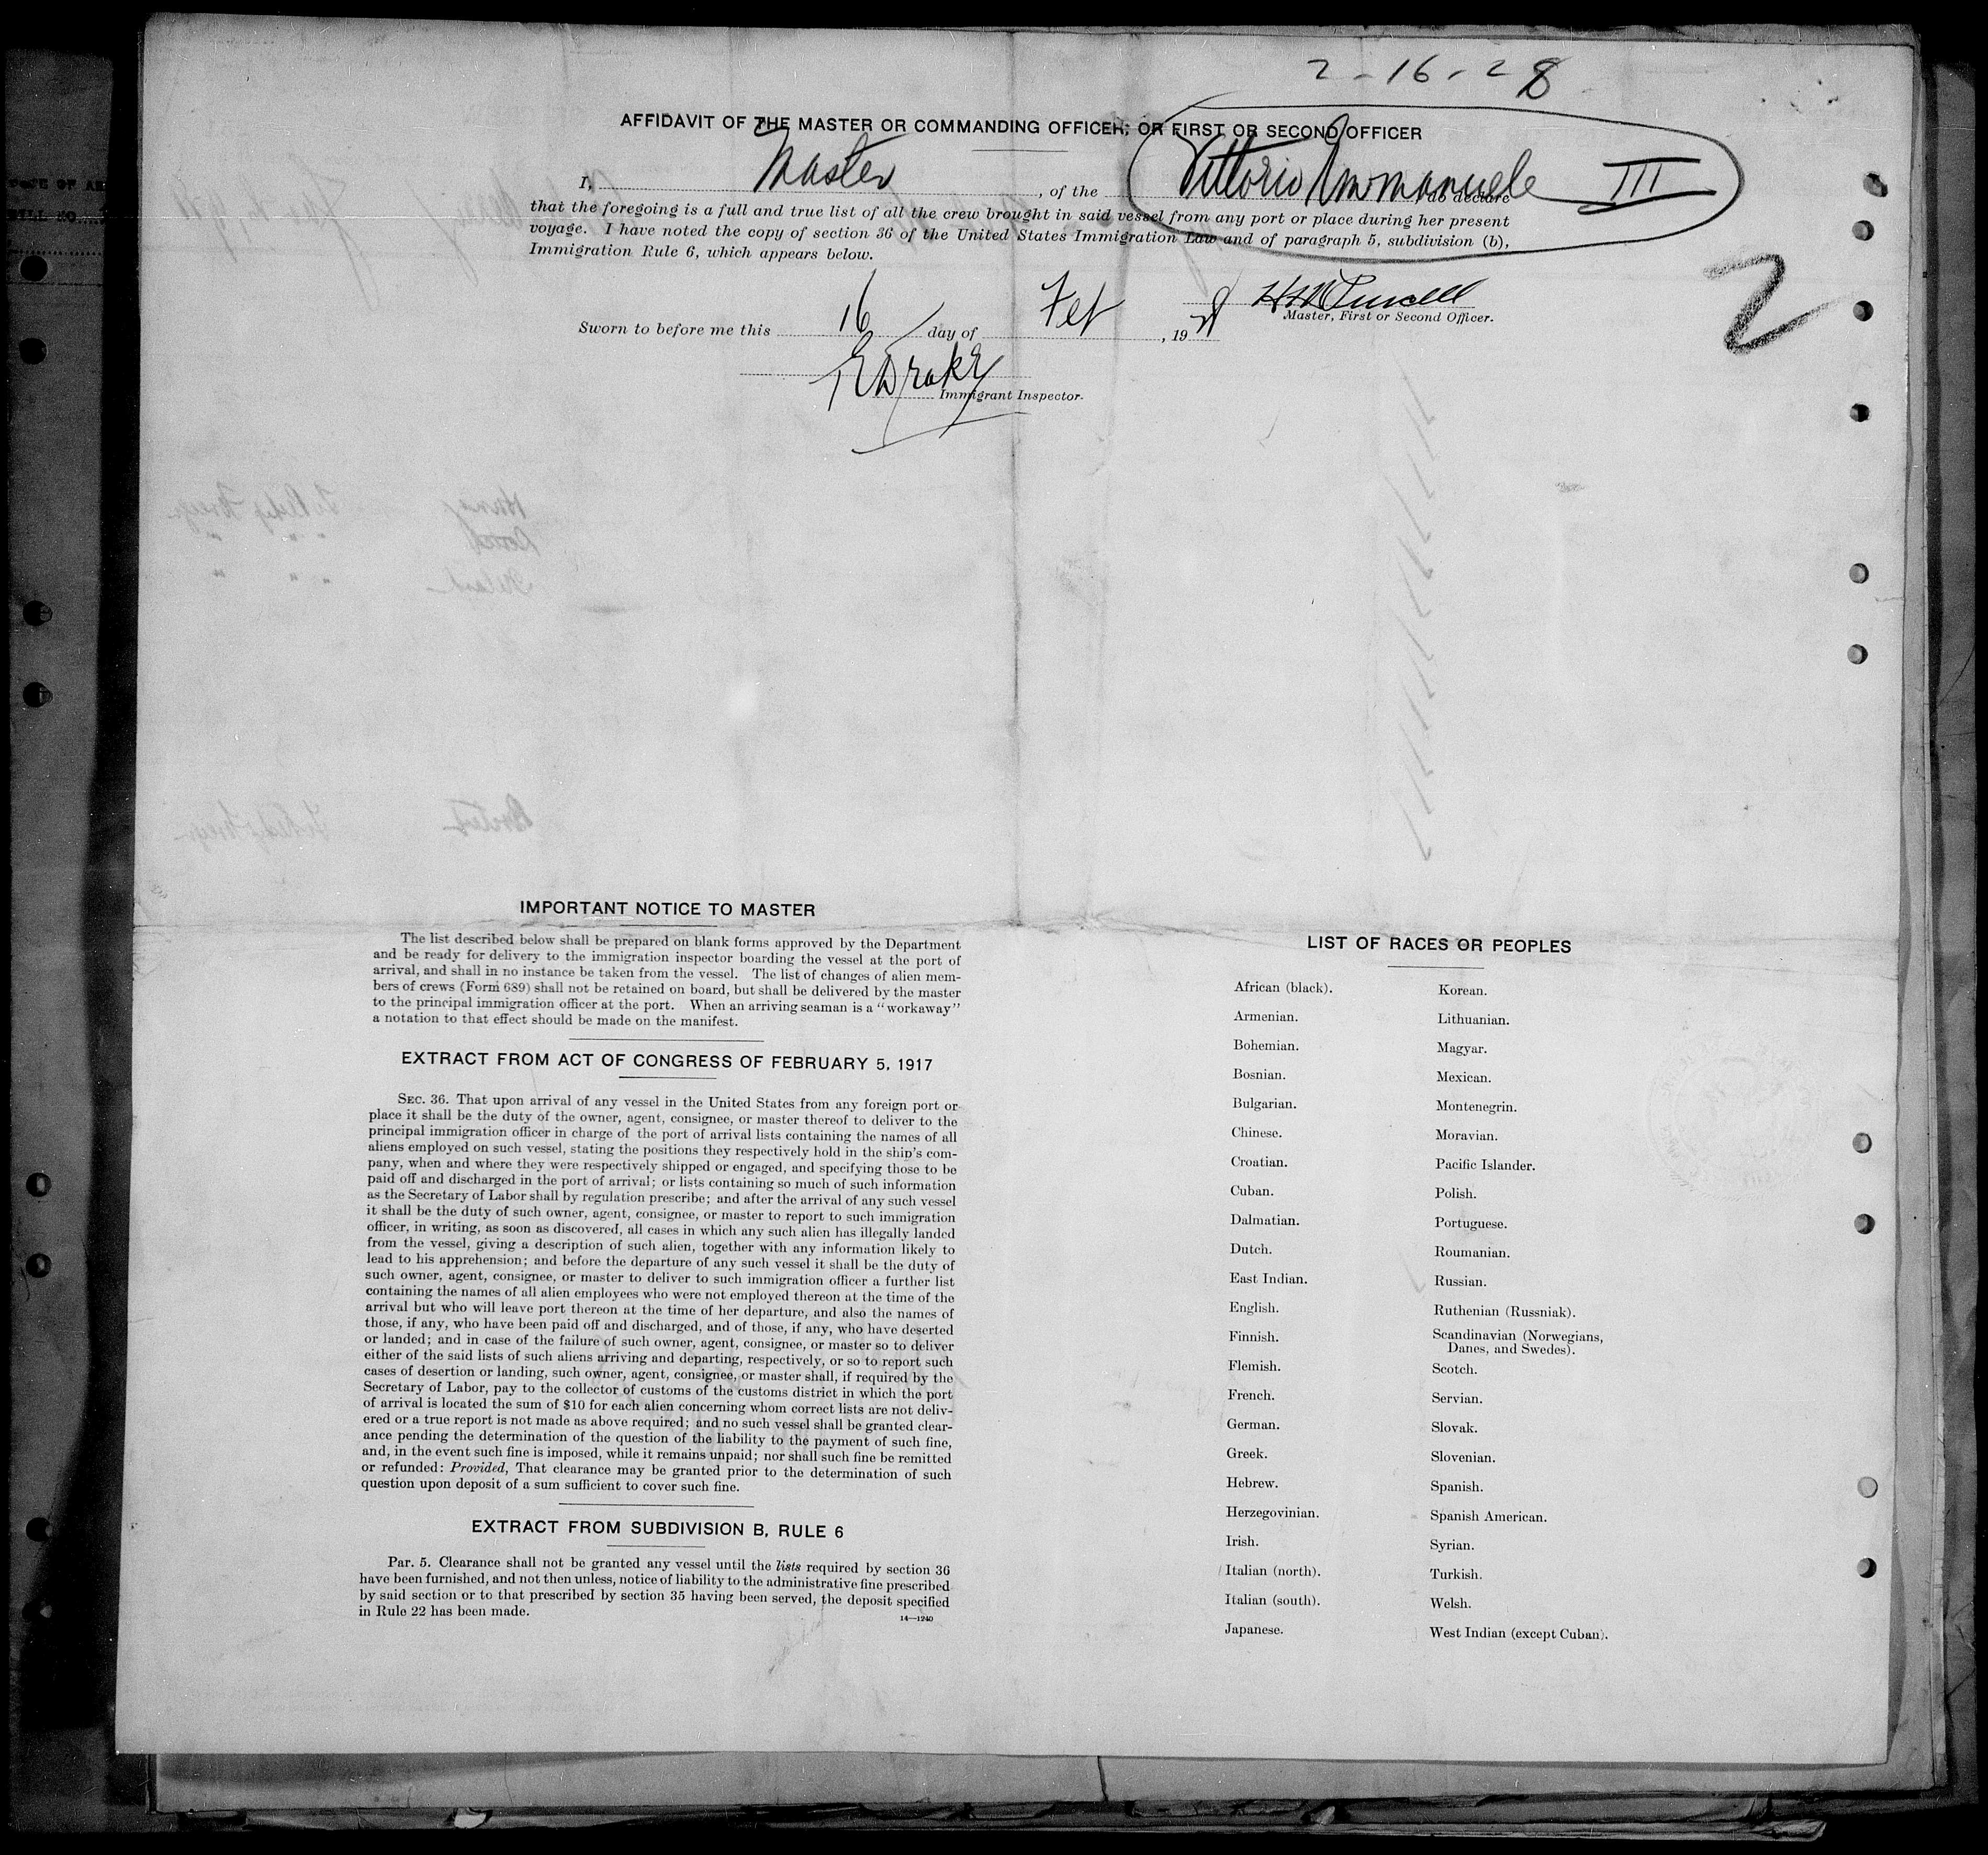 2-16-28
AFFIDAVIT OF THE MASTER OR COMMANDING OFFICER, OR FIRST OR SECOND OFFICER
I, Master, of the Vittorio Emmanuele III do declare
that the foregoing is a full and true list of all the crew brought in said vessel from any port or place during her present
voyage. I have noted the copy of section 36 of the United States Immigration Law and of paragraph 5, subdivision (b),
Immigration Rule 6, which appears below.
2
Master, First or Second Officer.
Sworn to before me this 16 day of Feb, 1928
E Drake
Immigrant Inspector.
IMPORTANT NOTICE TO MASTER
The list described below shall be prepared on blank forms approved by the Department
and be ready for delivery to the immigration inspector boarding the vessel at the port of
arrival, and shall in no instance be taken from the vessel. The list of changes of alien mem-
bers of crews (Form 689) shall not be retained on board, but shall be delivered by the master
to the principal immigration officer at the port. When an arriving seaman is a "workaway"
a notation to that effect should be made on the manifest.
EXTRACT FROM ACT OF CONGRESS OF FEBRUARY 5, 1917
SEC. 36. That upon arrival of any vessel in the United States from any foreign port or
place it shall be the duty of the owner, agent, consignee, or master thereof to deliver to the
principal immigration officer in charge of the port of arrival lists containing the names of all
aliens employed on such vessel, stating the positions they respectively hold in the ship's com-
pany, when and where they were respectively shipped or engaged, and specifying those to be
paid off and discharged in the port of arrival; or lists containing so much of such information
as the Secretary of Labor shall by regulation prescribe; and after the arrival of any such vessel
it shall be the duty of such owner, agent, consignee, or master to report to such immigration
officer, in writing, as soon as discovered, all cases in which any such alien has illegally landed
from the vessel, giving a description of such alien, together with any information likely to
lead to his apprehension; and before the departure of any such vessel it shall be the duty of
such owner, agent, consignee, or master to deliver to such immigration officer a further list
containing the names of all alien employees who were not employed thereon at the time of the
arrival but who will leave port thereon at the time of her departure, and also the names of
those, if any, who have been paid off and discharged, and of those, if any, who have deserted
or landed; and in case of the failure of such owner, agent, consignee, or master so to deliver
either of the said lists of such aliens arriving and departing, respectively, or so to report such
cases of desertion or landing, such owner, agent, consignee, or master shall, if required by the
Secretary of Labor, pay to the collector of customs of the customs district in which the port
of arrival is located the sum of $10 for each alien concerning whom correct lists are not deliv-
ered or a true report is not made as above required; and no such vessel shall be granted clear-
ance pending the determination of the question of the liability to the payment of such fine,
and, in the event such fine is imposed, while it remains unpaid; nor shall such fine be remitted
or refunded: Provided, That clearance may be granted prior to the determination of such
question upon deposit of a sum sufficient to cover such fine.
EXTRACT FROM SUBDIVISION B, RULE 6
Par. 5. Clearance shall not be granted any vessel until the lists required by section 36
have been furnished, and not then unless, notice of liability to the administrative fine prescribed
by said section or to that prescribed by section 35 having been served, the deposit specified
in Rule 22 has been made.
14—1240
LIST OF RACES OR PEOPLES
African (black).
Armenian.
Bohemian.
Bosnian.
Bulgarian.
Chinese.
Croatian.
Cuban.
Dalmatian.
Dutch.
East Indian.
English.
Finnish.
Flemish.
French.
German.
Greek.
Hebrew.
Herzegovinian.
Irish.
Italian (north).
Italian (south).
Japanese.
Korean.
Lithuanian.
Magyar.
Mexican.
Montenegrin.
Moravian.
Pacific Islander.
Polish.
Portuguese.
Roumanian.
Russian.
Ruthenian (Russniak).
Scandinavian (Norwegians,
Danes, and Swedes).
Scotch.
Servian.
Slovak.
Slovenian.
Spanish.
Spanish American.
Syrian.
Turkish.
Welsh.
West Indian (except Cuban).